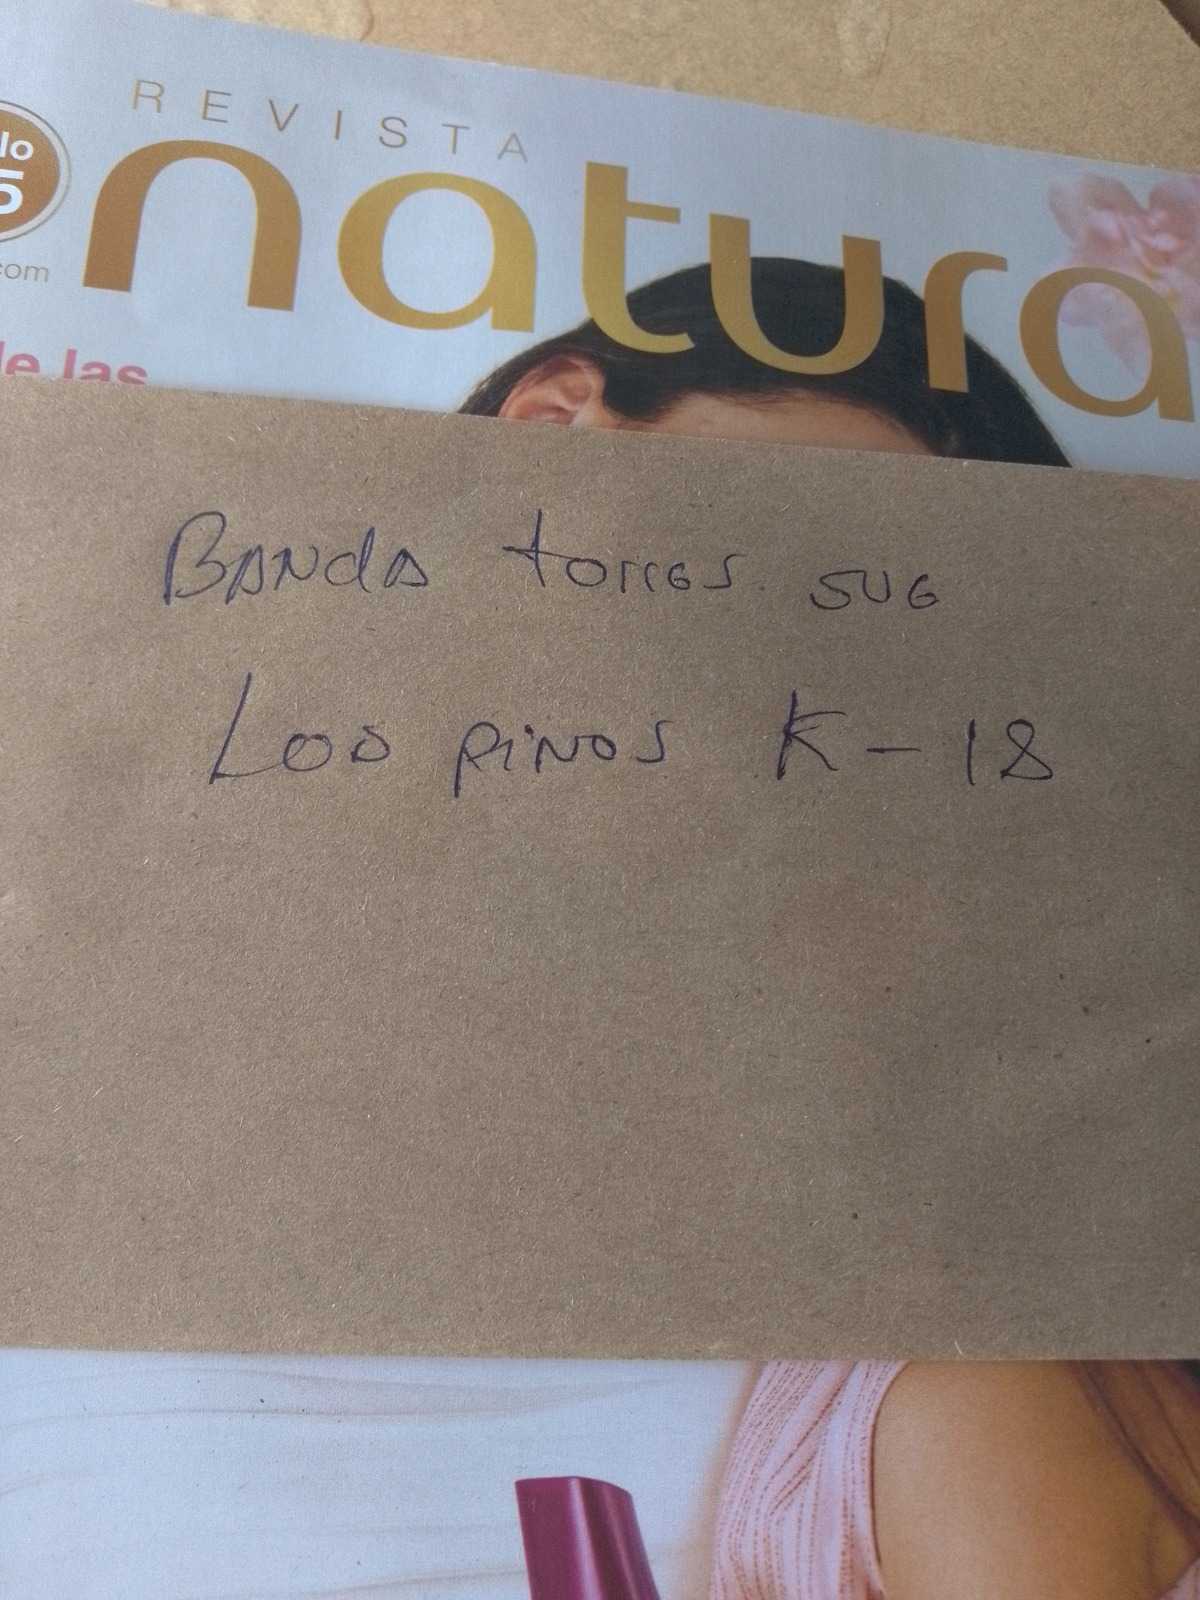 REVISTA
natura
lo
5
com
de las
BANda torres SUG
Los pinos K-18